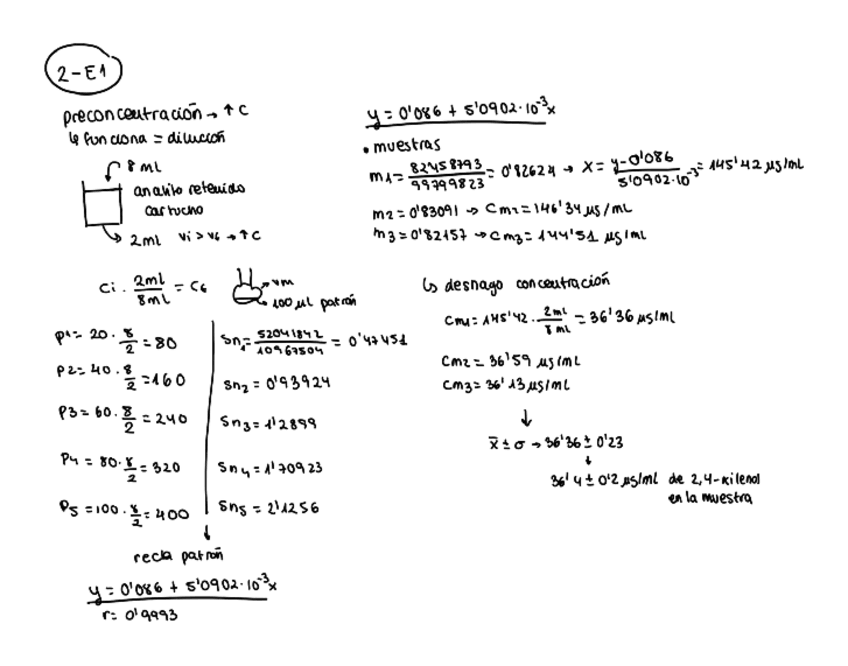 2-E1
preconcentración → ↑ C
↳ funciona = dilución
8 ml
analito retenido
cartucho
2 ml   Vi > V6 → ↑C
Ci · 2ml/8ml = C6
vm
100 µl patrón
P1 = 20 · 8/2 = 80
P2 = 40 · 8/2 = 160
P3 = 60 · 8/2 = 240
P4 = 80 · 8/2 = 320
P5 = 100 · 8/2 = 400
Sn1 = 52041842/10967504 = 0'47451
Sn2 = 0'93924
Sn3 = 1'2899
Sn4 = 1'70923
Sn5 = 2'1256
recta patrón
y = 0'086 + 5'0902·10⁻³x
r = 0'9993
y = 0'086 + 5'0902·10⁻³x
• muestras
m1 = 82458793/99799823 = 0'82624 → X = y-0'086/5'0902·10⁻³ = 145'42 µg/mL
m2 = 0'83091 → Cm2 = 146'34 µg/mL
m3 = 0'82157 → Cm3 = 144'51 µg/mL
↳ deshago concentración
Cm1 = 145'42 · 2ml/8ml = 36'36 µg/mL
Cm2 = 36'59 µg/mL
Cm3 = 36'13 µg/mL
x̄ ± σ → 36'36 ± 0'23
36'4 ± 0'2 µg/ml de 2,4-xilenol
en la muestra